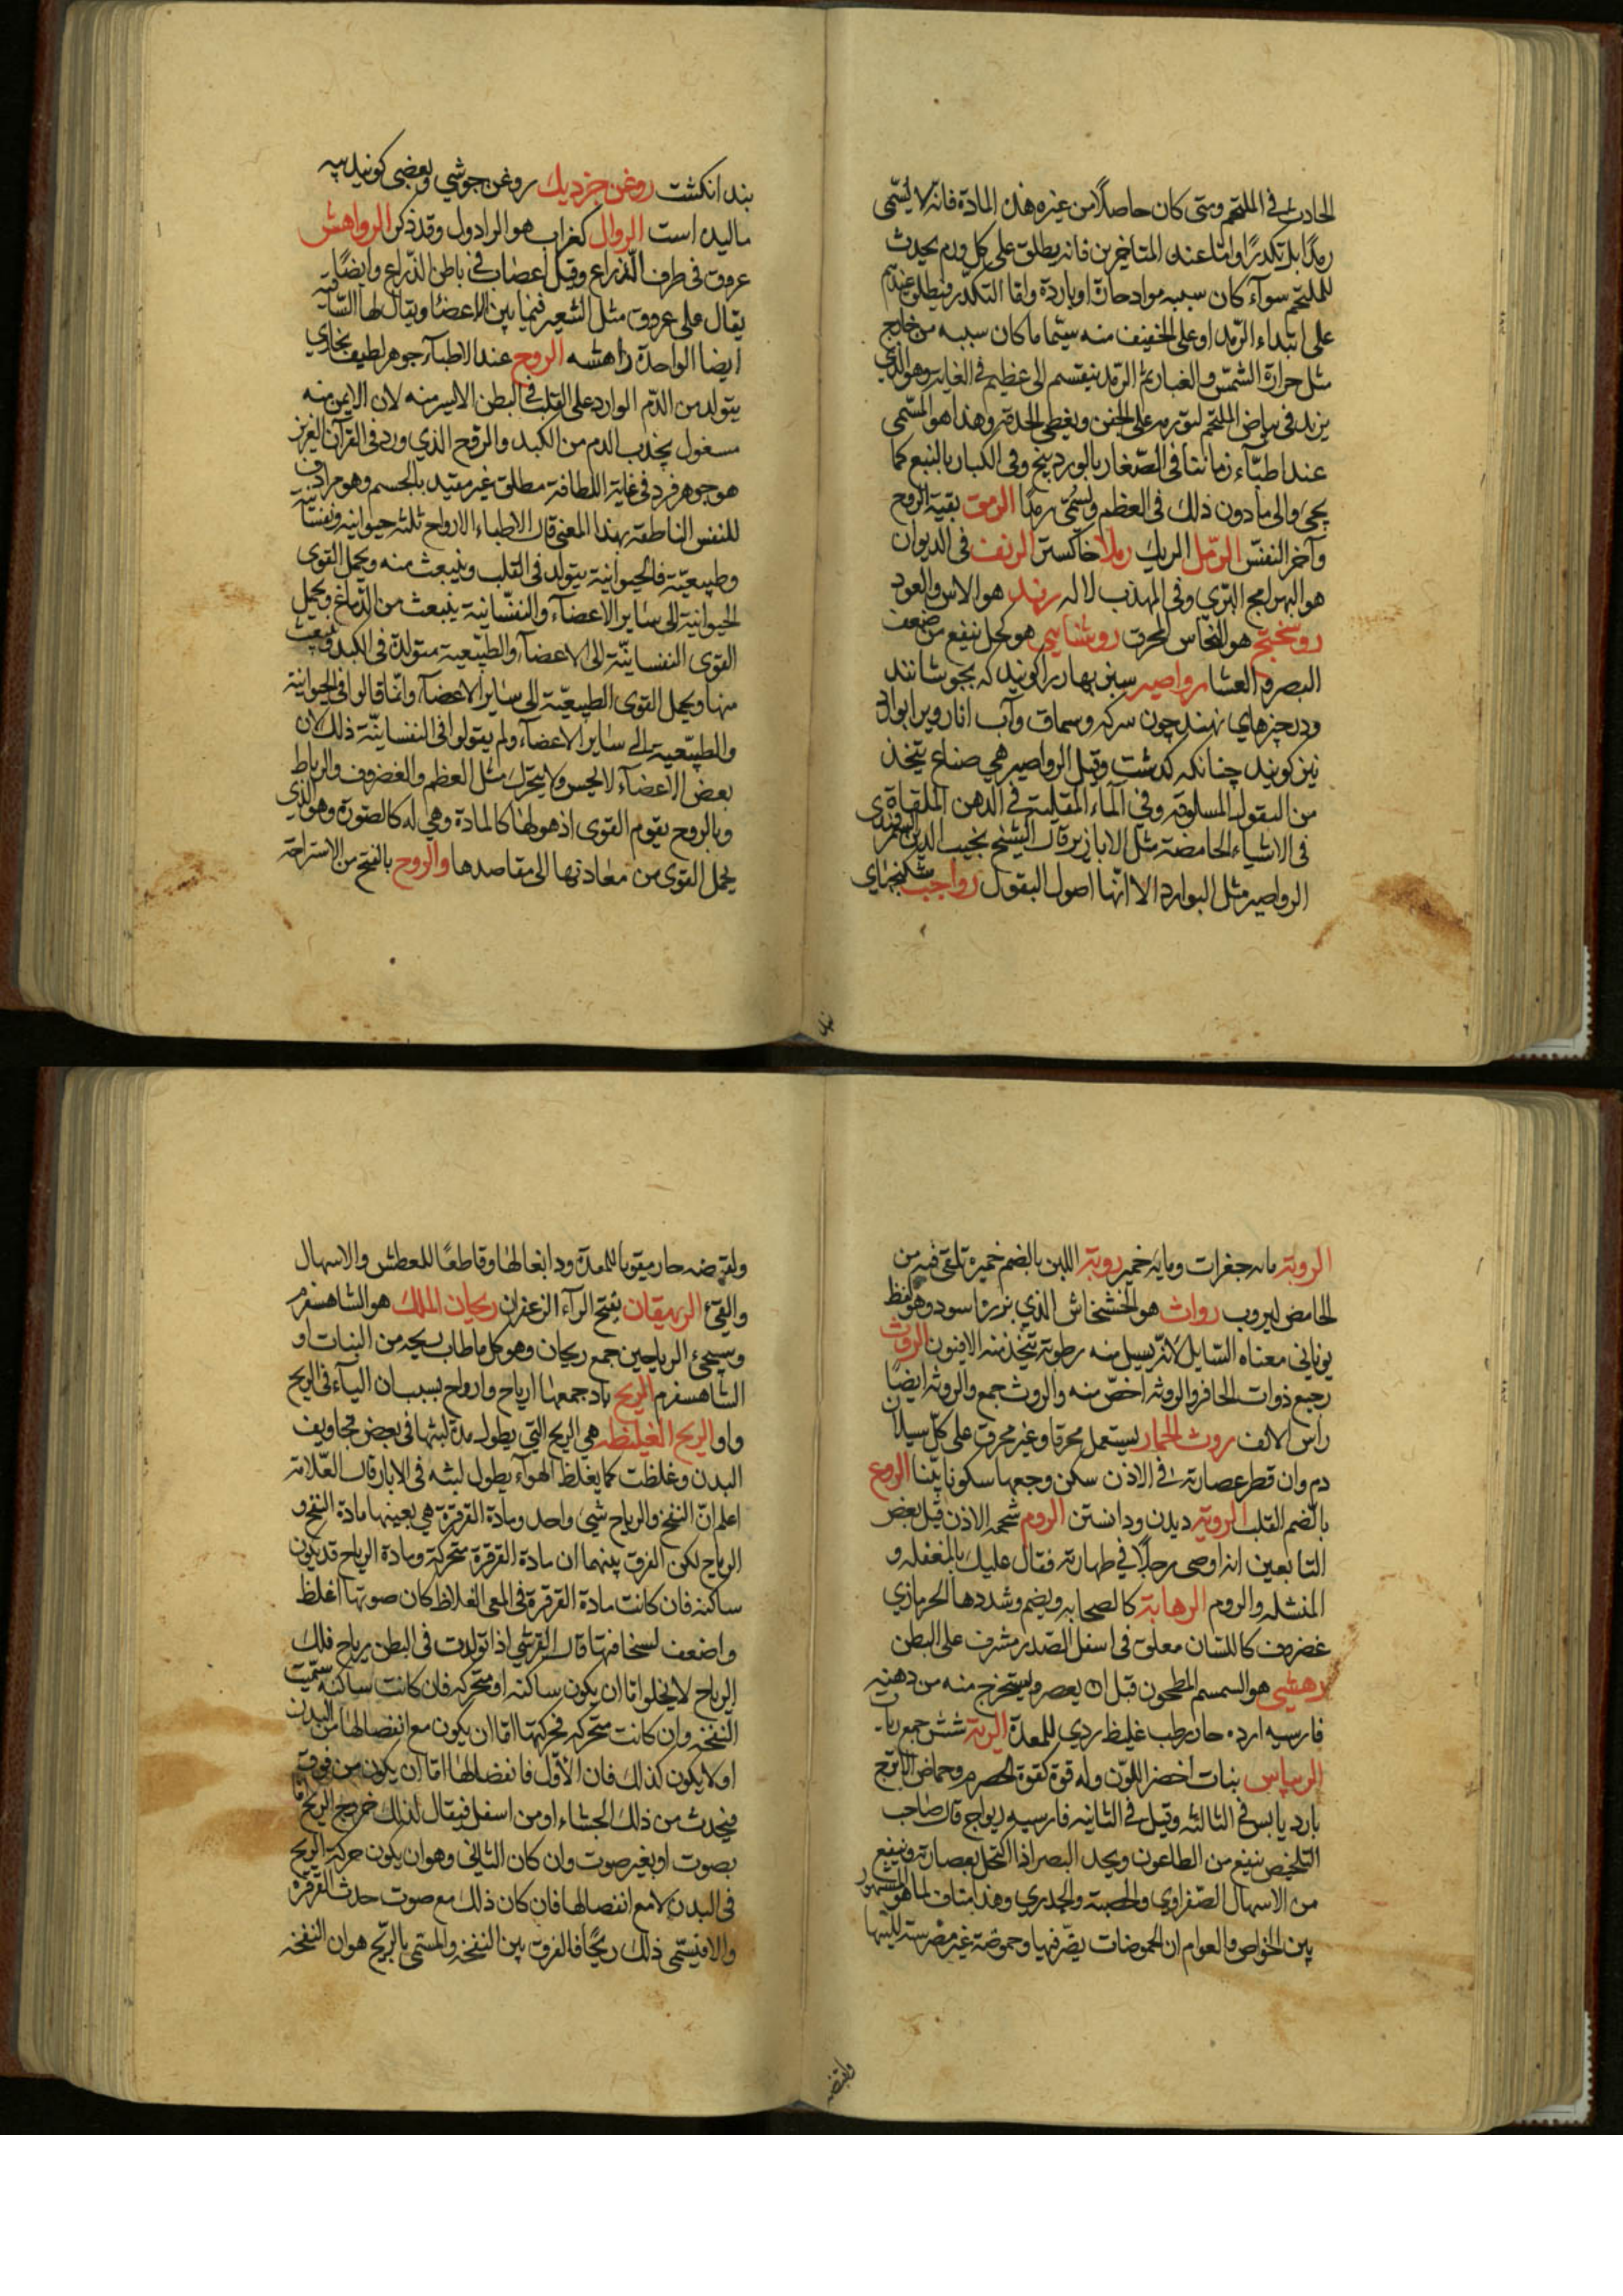 الحادث في الملتحم ومتى كان حاصلًا من غيره هذه المادة فانه لا يسمى
رمدًا بل تكدرًا واما عند المتاخرين فانه يطلق على كل ورم يحدث
للملتحم سوآء كان سببه مواد حارة او باردة واما التكدر فيطلق عندهم
على ابتداء الرمد او على الخفيف منه سيما ما كان سببه من خارج
مثل حرارة الشمس والغبار ثم الرمد ينقسم الى عظيم في الغاية وهو الذي
يزيد في بياض الملتحم لتورمه على الجفن ويغطى الحدقة وهذا هو المسمى
عند اطبآء زماننا في الصغار بالوردينج وفي الكبار بالنبع كما
يجئ والى ما دون ذلك في العظم ويسمى رمدًا الرمق بقية الروح
وآخر النفس الرمل الريك رملا خاكستر الرنف في الديوان
هو البهرامج البري وفي المهذب لاله رند هو الاس والعود
روسختج هو النحاس المحرق روشنايي هو كحل ينفع من ضعف
البصر والعشا رواصير سبز بهار را كويند كه بجوشانند
ودر چيزهاي نهند چون سركه وسماق وآب انار ويرا بوارد
نيز كويند چنانكه كذشت وقيل الرواصير هي صناع يتخذ
من البقول المسلوقة وفي المآء المقلية في الدهن الملقاة
في الاشياء الحامضة مثل الابازير قال الشيخ نجيب الدين السمرقندي
الرواصير مثل البوارد الا انها اصول البقول رواجب شكنجهاي
بند انكشت روغن جزديك روغن جوشي وبعضى كويند پيه
ماليده است الروال كغراب هو الرادول وقد ذكر الرواهش
عروق في طرف الذراع وقيل اعصاب في باطن الذراع وايضًا
يقال على عروق مثل الشعير فيما بين الاعضا ويقال لها الساقيه
ايضا الواحدة راهشه الروح عند الاطبآء جوهر لطيف بخاري
يتولد من الدم الوارد على القلب في البطن الايسر منه لان الايمن منه
مشغول بجذب الدم من الكبد والروح الذي ورد في القرآن العزيز
هو جوهر فرد في غاية اللطافة مطلق غير مقيد بالجسم وهو مرادف
للنفس الناطقة بهذا المعنى قال الاطباء الارواح ثلثه حيوانيه ونفسانية
وطبيعية فالحيوانية يتولد في القلب وينبعث منه ويحمل القوى
الحيوانية الى ساير الاعضآء والنفسانية ينبعث من الدماغ ويحمل
القوى النفسانية الى الاعضآء والطبيعية متولدة في الكبد وتنبعث
منها ويحمل القوى الطبيعية الى ساير الاعضآء وانما قالوا في الحيوانية
والطبيعية الى ساير الاعضآء ولم يقولوا في النفسانية ذلك لان
بعض الاعضآء لا يحس ولا يتحرك مثل العظم والغضروف والرباط
وبالروح يقوم القوى اذ هو لها كالمادة وهي له كالصورة وهو الذي
يحمل القوى من معادنها الى مقاصدها والروح بالفتح من الاستراحة
نبد
الروبة مايه جغرات ومايه خمير روبة اللبن بالضم خميرة تلقى فيه من
الحامض ليروب رواث هو الخشخاش الذي بزره اسود وهو لفظ
يوناني معناه السايل لانه يسيل منه رطوبة يتخذ منه الافيون الروث
رجيع ذوات الحافر والروثه اخص منه والروث جمع والروثة ايضًا
راس الانف روث الحمار يستعمل محرقا وغير محرق على كل سيلان
دم وان قطر عصارته في الاذن سكن وجعها سكونا بينا الروع
بالضم القلب الروية ديدن ودانستن الروم شحمه الاذن قيل بعض
التابعين انه اوصى رجلًا في طهارته فقال عليك بالمغفله و
المنشله والروم الرهابة كالصحابه ويضم وشددها الحرمازي
غضروف كاللسان معلق في اسفل الصدر مشرف على البطن
رهشي هو السمسم المطحون قبل ان يعصر ويستخرج منه من دهنيه
فارسيه ارده حار رطب غليظ ردي للمعدة الرية شش جمع ريات
الريباس بنبات اخضر اللون وله قوة كقوة الحصرم وحماض الاترج
بارد يابس في الثالثه وقيل في الثانيه فارسيه ريواج قال صاحب
التلخيص ينفع من الطاعون ويحد البصر اذا اكتحل بعصارته وينفع
من الاسهال الصفراوي والحصبة والجدري وهذا مناف لما هو المشهور
بين الخواص والعوام ان الحموضات يضر فيها وحموضة غير مضرسة للينها
ولقبضه صار مقويا للمعدة ودابغا لها وقاطعًا للعطش والاسهال
والقيء الريهقان بفتح الرآء الزعفران ريحان الملك هو الشاهسفرم
وسيجئ الرياحين جمع ريحان وهو كل ما طاب ريحه من النبات او
الشاهسفرم الريح باد جمعها ارياح وارواح بسبب ان اليآء في الريح
واو الريح الغليظه هي الريح التي يطول مدة لبثها في بعض تجاويف
البدن وغلظت كما يغلظ الهوآء يطول لبثه في الابار قال العلامة
اعلم ان النفخ والرياح شيئ واحد ومادة القرقرة هي بعينها مادة النفخ و
الرياح لكن الفرق بينهما ان مادة القرقرة متحركة ومادة الرياح قد يكون
ساكنه فان كانت مادة القرقرة في المعى الغلاظ كان صوتها اغلظ
واضعف لسخافتها قال القرشي اذا تولدت في البطن رياح فلك
الرياح لا يخلوا اما ان يكون ساكنه او متحركه فان كانت ساكنه سميت
النفخه وان كانت متحركه فحركتها اما ان يكون مع انفصالها من البدن
او لا يكون كذلك فان الأول فانفصالها اما ان يكون من فوق
فيحدث من ذلك الجشاء او من اسفل فيقال لذلك خروج الريح اما
بصوت او بغير صوت وان كان الثاني وهو ان يكون حركة الريح
في البدن لا مع انفصالها فان كان ذلك مع صوت حدث القرقرة
والا فيسمى ذلك ريحًا فالفرق بين النفخه والمسمى بالريح هو ان النفخه
ولقبضه